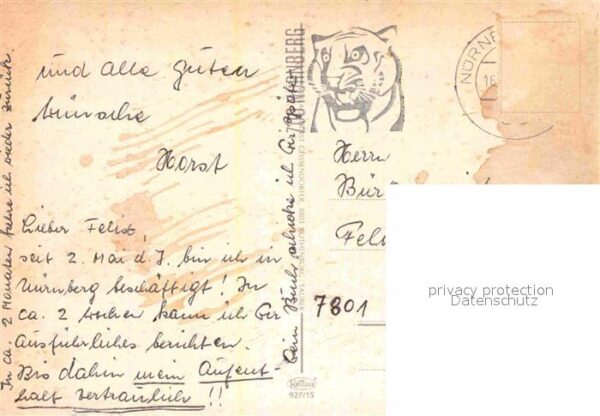 Lieber Felix,
seit 2. Mai d. J. bin ich in
Nürnberg beschäftigt! In
ca. 2 Wochen kann ich Dir
Ausführliches berichten.
Bis dahin mein Aufent-
halt vertraulich!!
Dein Buch schicke ich Dir später
In ca. 2 Monaten kehre ich wieder zurück.
und alle guten
Wünsche
Horst
NÜRNBERG
NÜRNB
Herrn
Bür
Fel
7801
privacy protection
Datenschutz
927/15